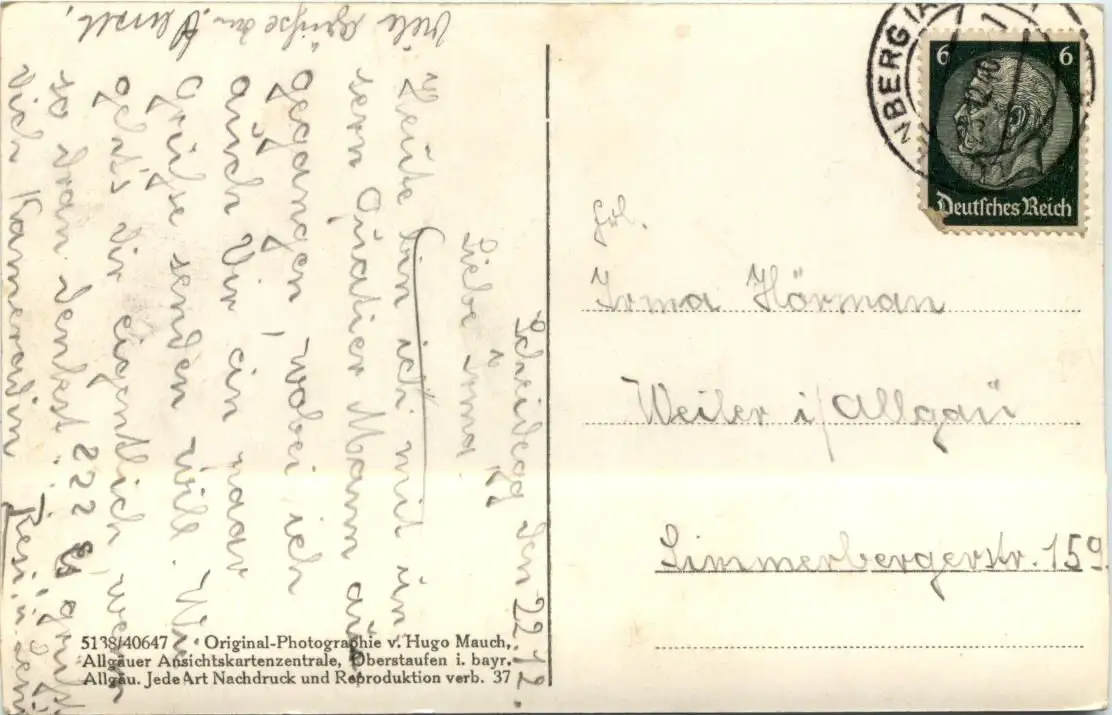 Scheidegg den 22.12.
Liebe Irma!
Heute bin ich mit un
sern Quatier Mann aus
gegangen, wobei ich
auch Dir, ein paar
Grüße senden will. Wie
geht's Dir eigentlich, wenn
so dran denkst.. ??? Es grüßt
Dich Kameradin Resi, u.
Viele Grüße an
5138/40647 • Original-Photographie v. Hugo Mauch,
Allgäuer Ansichtskartenzentrale, Oberstaufen i. bayr.
Allgäu. Jede Art Nachdruck und Reproduktion verb. 37
NBERG (A
6 6
Deutsches Reich
Frl.
Irma Hörman
Weiler i/Allgäu
Simmerbergerstr. 159